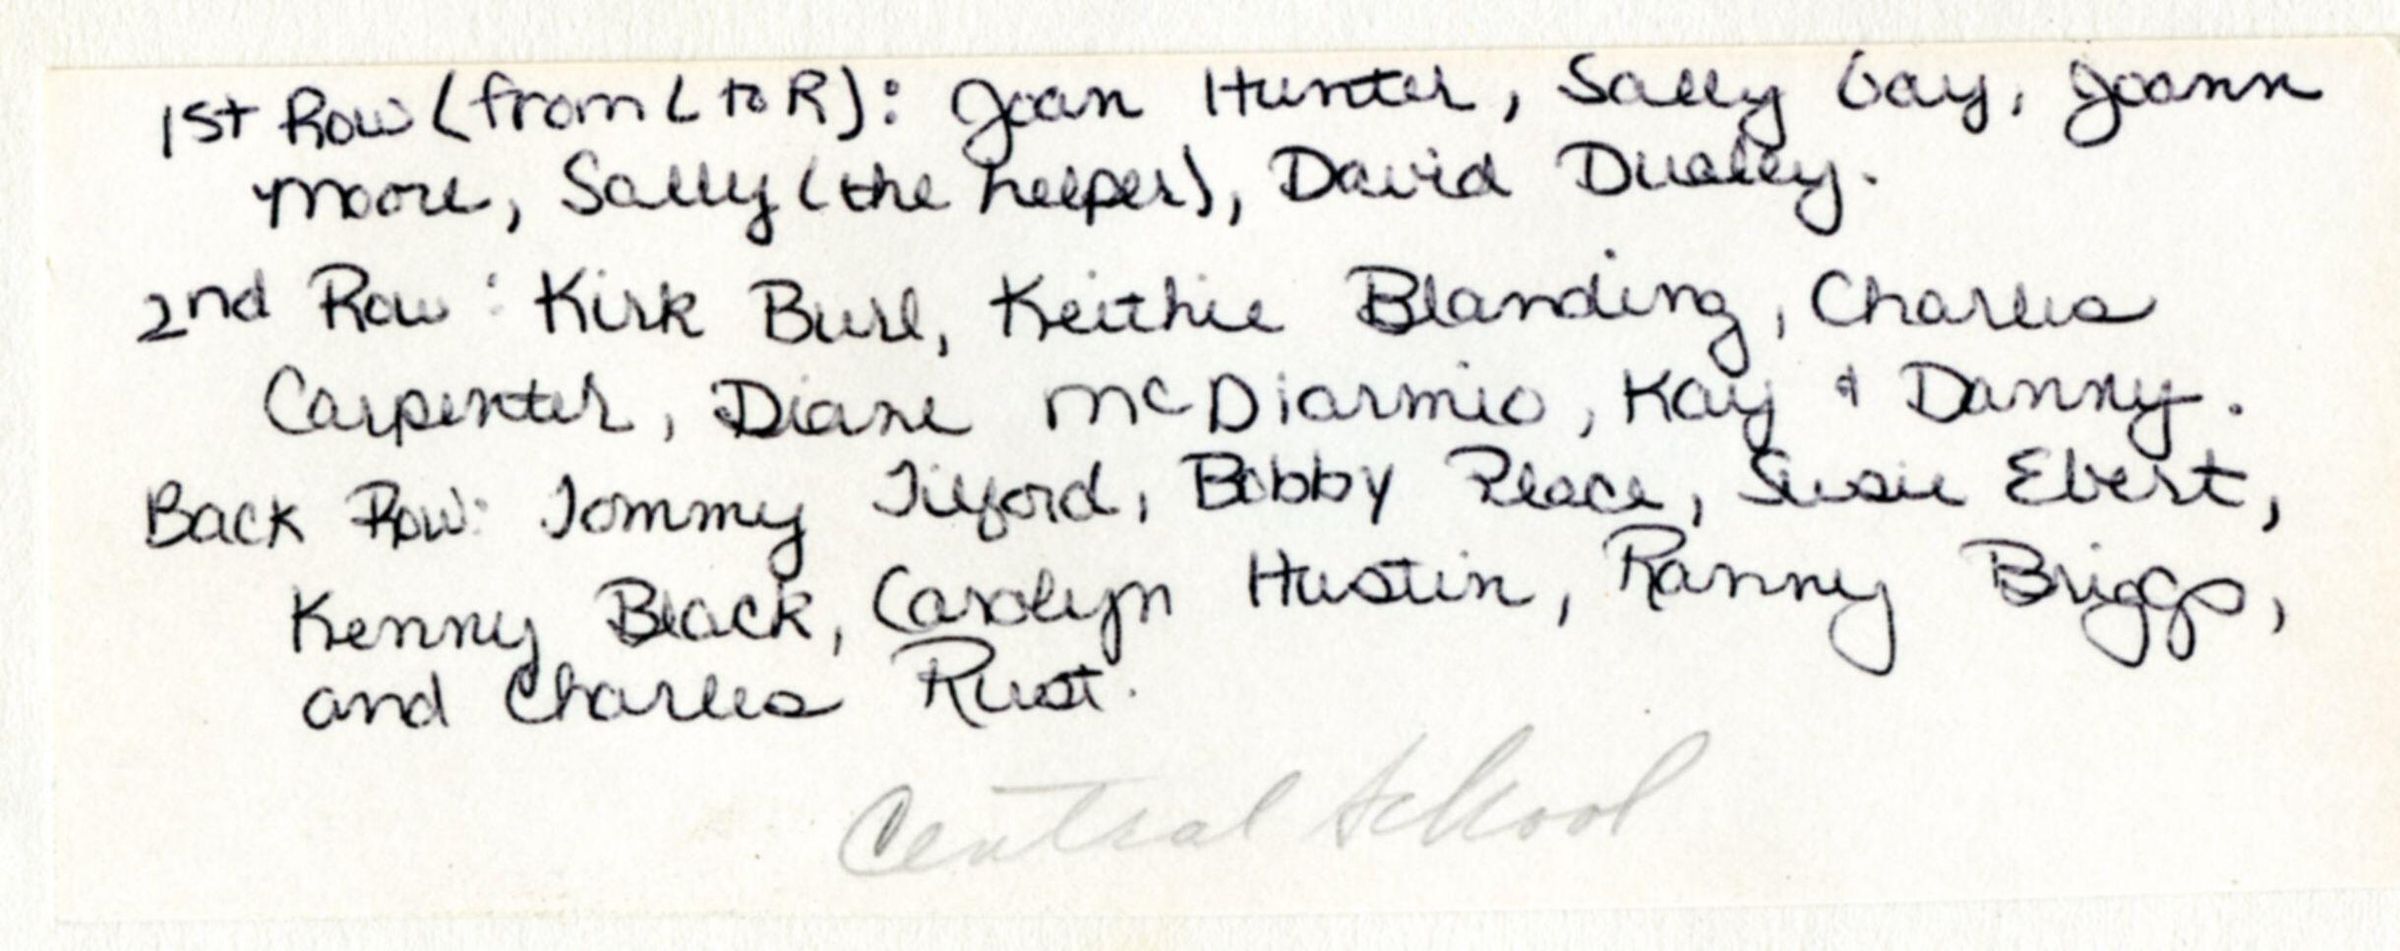 1st Row (from L to R): Joan Hunter, Sally Gay, Joann
Moore, Sally (the helper), David Dudley.
2nd Row: Kirk Burl, Keithie Blanding, Charles
Carpenter, Diane McDiarmid, Kay & Danny.
Back Row: Tommy Tilford, Bobby Peace, Susie Ebert,
Kenny Black, Carolyn Hustin, Ranny Briggs,
and Charles Rust.
Central School